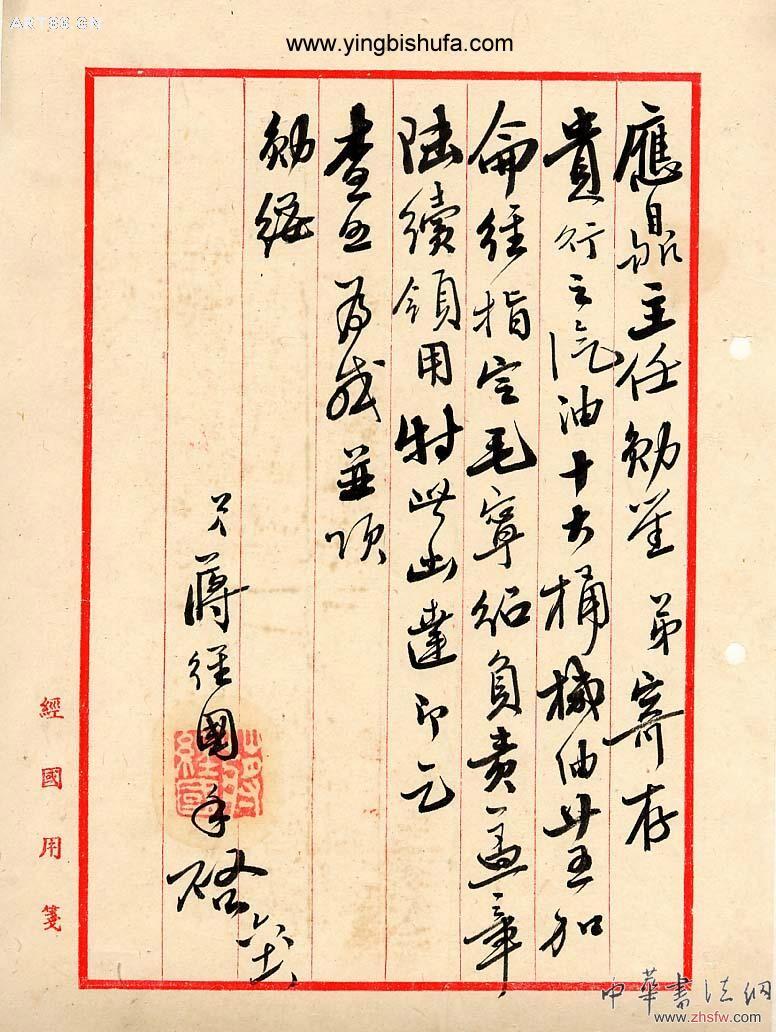 ART86.CN
www.yingbishufa.com
應鼎主任勛鑒 弟寄存
貴行之汽油十大桶機油廿五加
侖經指定毛寧紹負責蓋章
陸續領用特此函達即乞
查照為感並頌
勛綏
弟蔣經國手啓
經國用箋
中華書法網
www.zhsfw.com